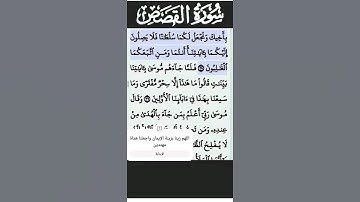 سُورَةُ القَصَصِ
بِأَخِيكَ وَنَجْعَلُ لَكُمَا سُلْطَٰنًا فَلَا يَصِلُونَ
إِلَيْكُمَا بِـَٔايَٰتِنَآ أَنتُمَا وَمَنِ ٱتَّبَعَكُمَا
ٱلْغَٰلِبُونَ ٣٥ فَلَمَّا جَآءَهُم مُّوسَىٰ بِـَٔايَٰتِنَا
بَيِّنَٰتٍ قَالُوا۟ مَا هَٰذَآ إِلَّا سِحْرٌ مُّفْتَرًى وَمَا
سَمِعْنَا بِهَٰذَا فِىٓ ءَابَآئِنَا ٱلْأَوَّلِينَ ٣٦ وَقَالَ
مُوسَىٰ رَبِّىٓ أَعْلَمُ بِمَن جَآءَ بِٱلْهُدَىٰ مِنْ
عِندِهِۦ وَمَن
لَا يُفْلِحُ
اللهم زينا بزينة الإيمان واجعلنا هداة
مهتدين